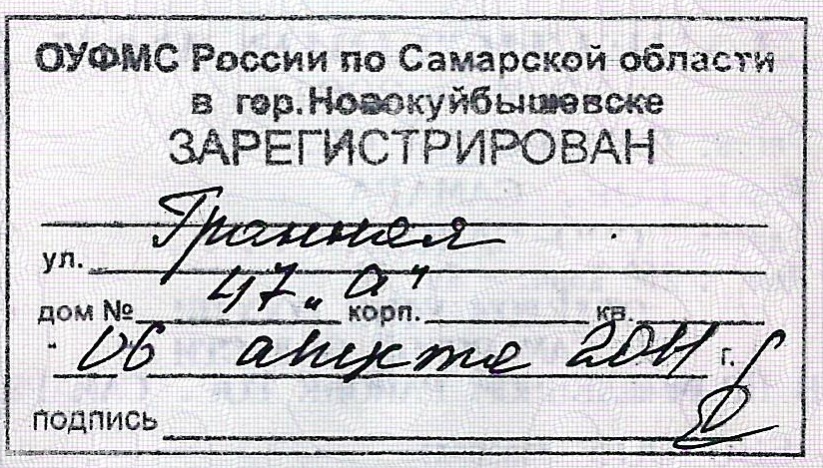 ОУФМС России по Самарской области
в гор.Новокуйбышевске
ЗАРЕГИСТРИРОВАН
ул. Гранная
дом № 47 „а" корп. кв.
" 06 августа 2011 г.
подпись